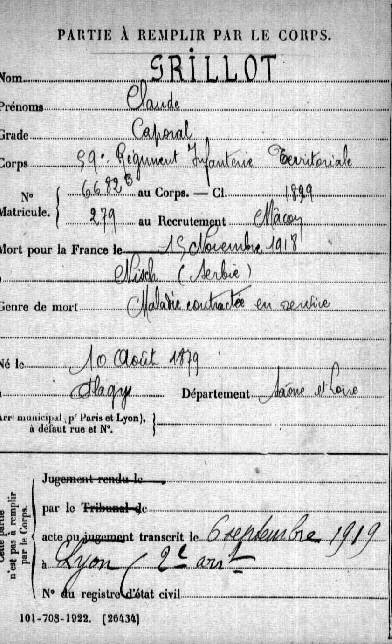 PARTIE À REMPLIR PAR LE CORPS.
Nom GRILLOT
Prénoms Claude
Grade Caporal
Corps 59e Régiment Infanterie Territoriale
N° 6682 au Corps. — Cl. 1899
Matricule. 279 au Recrutement Mâcon
Mort pour la France le 15 Novembre 1918
à Nisch (Serbie)
Genre de mort Maladie contractée en service
Né le 10 Août 1879
à Flagy Département Saône et Loire
Arr municipal (p' Paris et Lyon),
à défaut rue et N°.
Cette partie
n'est pas à remplir
par le Corps.
Jugement rendu le
par le Tribunal de
acte ou jugement transcrit le 6 septembre 1919
à Lyon (2e arrt
N° du registre d'état civil
101-708-1922. [26434]